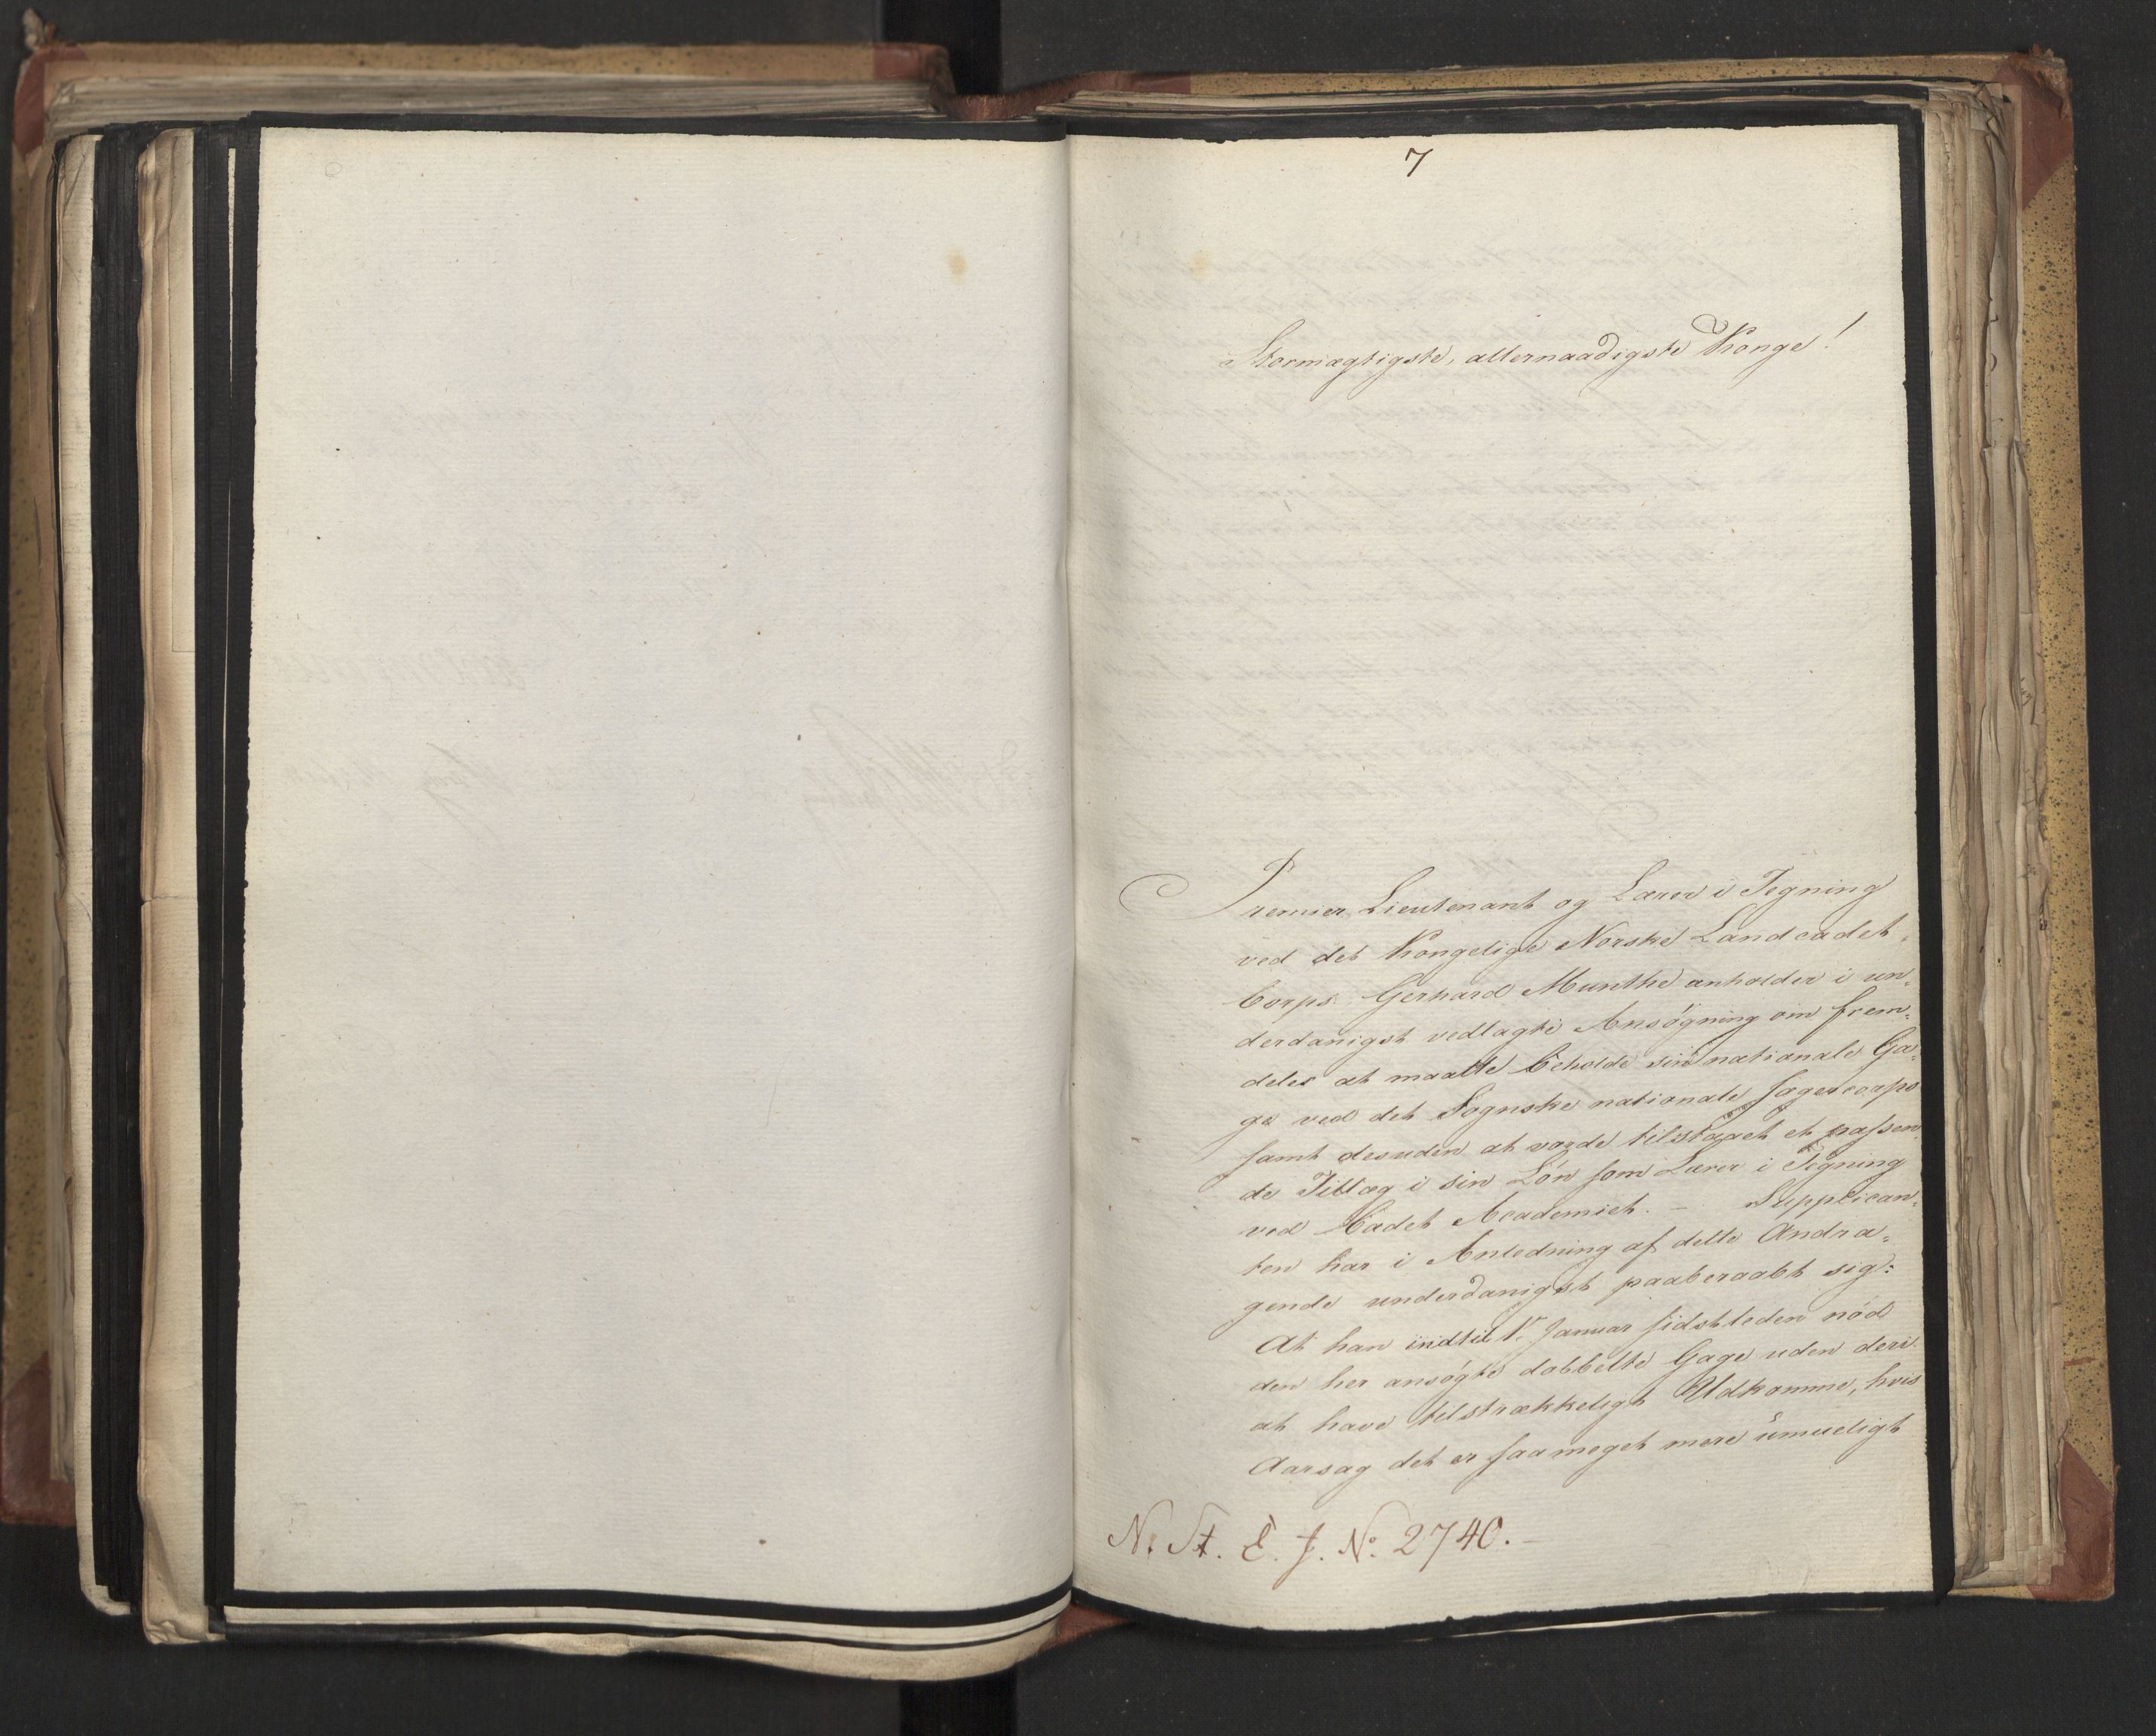 7
Stormægtigste, allernaadigste Konge!
Premier Lieutenant og Lærer i Tegning
ved det Kongelige Norske Landcadet-
Corps Gerhard Munthe anholder i un-
derdanigst vedlagte Ansøgning om frem-
deles at maatte beholde sin nationale Ga-
ge ved det Sognske nationale Jægercorps
samt desuden at vorde tilstaaet et passen-
de Tillæg i sin Løn som Lærer i Tegning
ved Cadet Academiet. – Supplican-
ten har i Anledning af dette Andra-
gende underdanigst paaberaabt sig:
At han indtil 1r Januar sidstleden nød
den her ansøgte dobbelte Gage uden deri
at have tilstrækkeligt Udkomme, hvis
Aarsag det er saameget mere umueligt
N. St. E. J. No. 2740. –